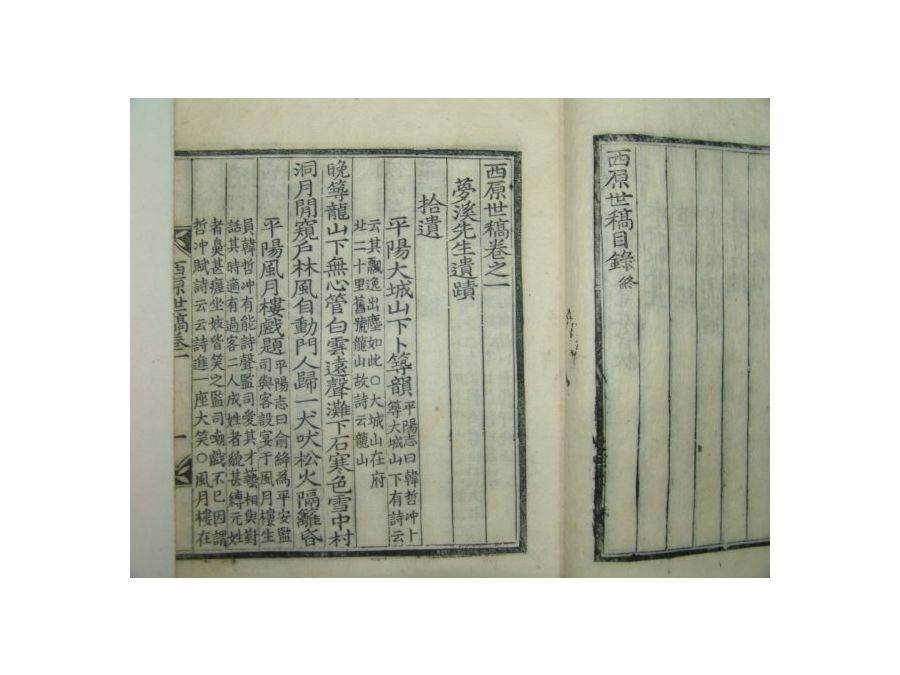 西原世稿目錄 終
西原世稿卷之一
夢溪先生遺蹟
拾遺
平陽大城山下卜築韻 平陽志曰韓哲冲卜
築大城山下有詩云
云其飄逸出塵如此○大城山在府
北二十里舊號龍山故詩云龍山
晚築龍山下無心管白雲遠聲灘下石寒色雪中村
洞月閒窺戶林風自動門人歸一犬吠松火隔籬昏
平陽風月樓戲題 平陽志曰俞絳為平安監
司與客設宴于風月樓生
員韓哲冲有能詩聲監司愛其才藝相與對
話其時適有過客二人成姓者貌甚縛元姓
者鼻甚癭坐妓皆笑之監司嘲戲不已因謂
哲冲賦詩云云詩進一座大笑○風月樓在
西原世稿卷一
一